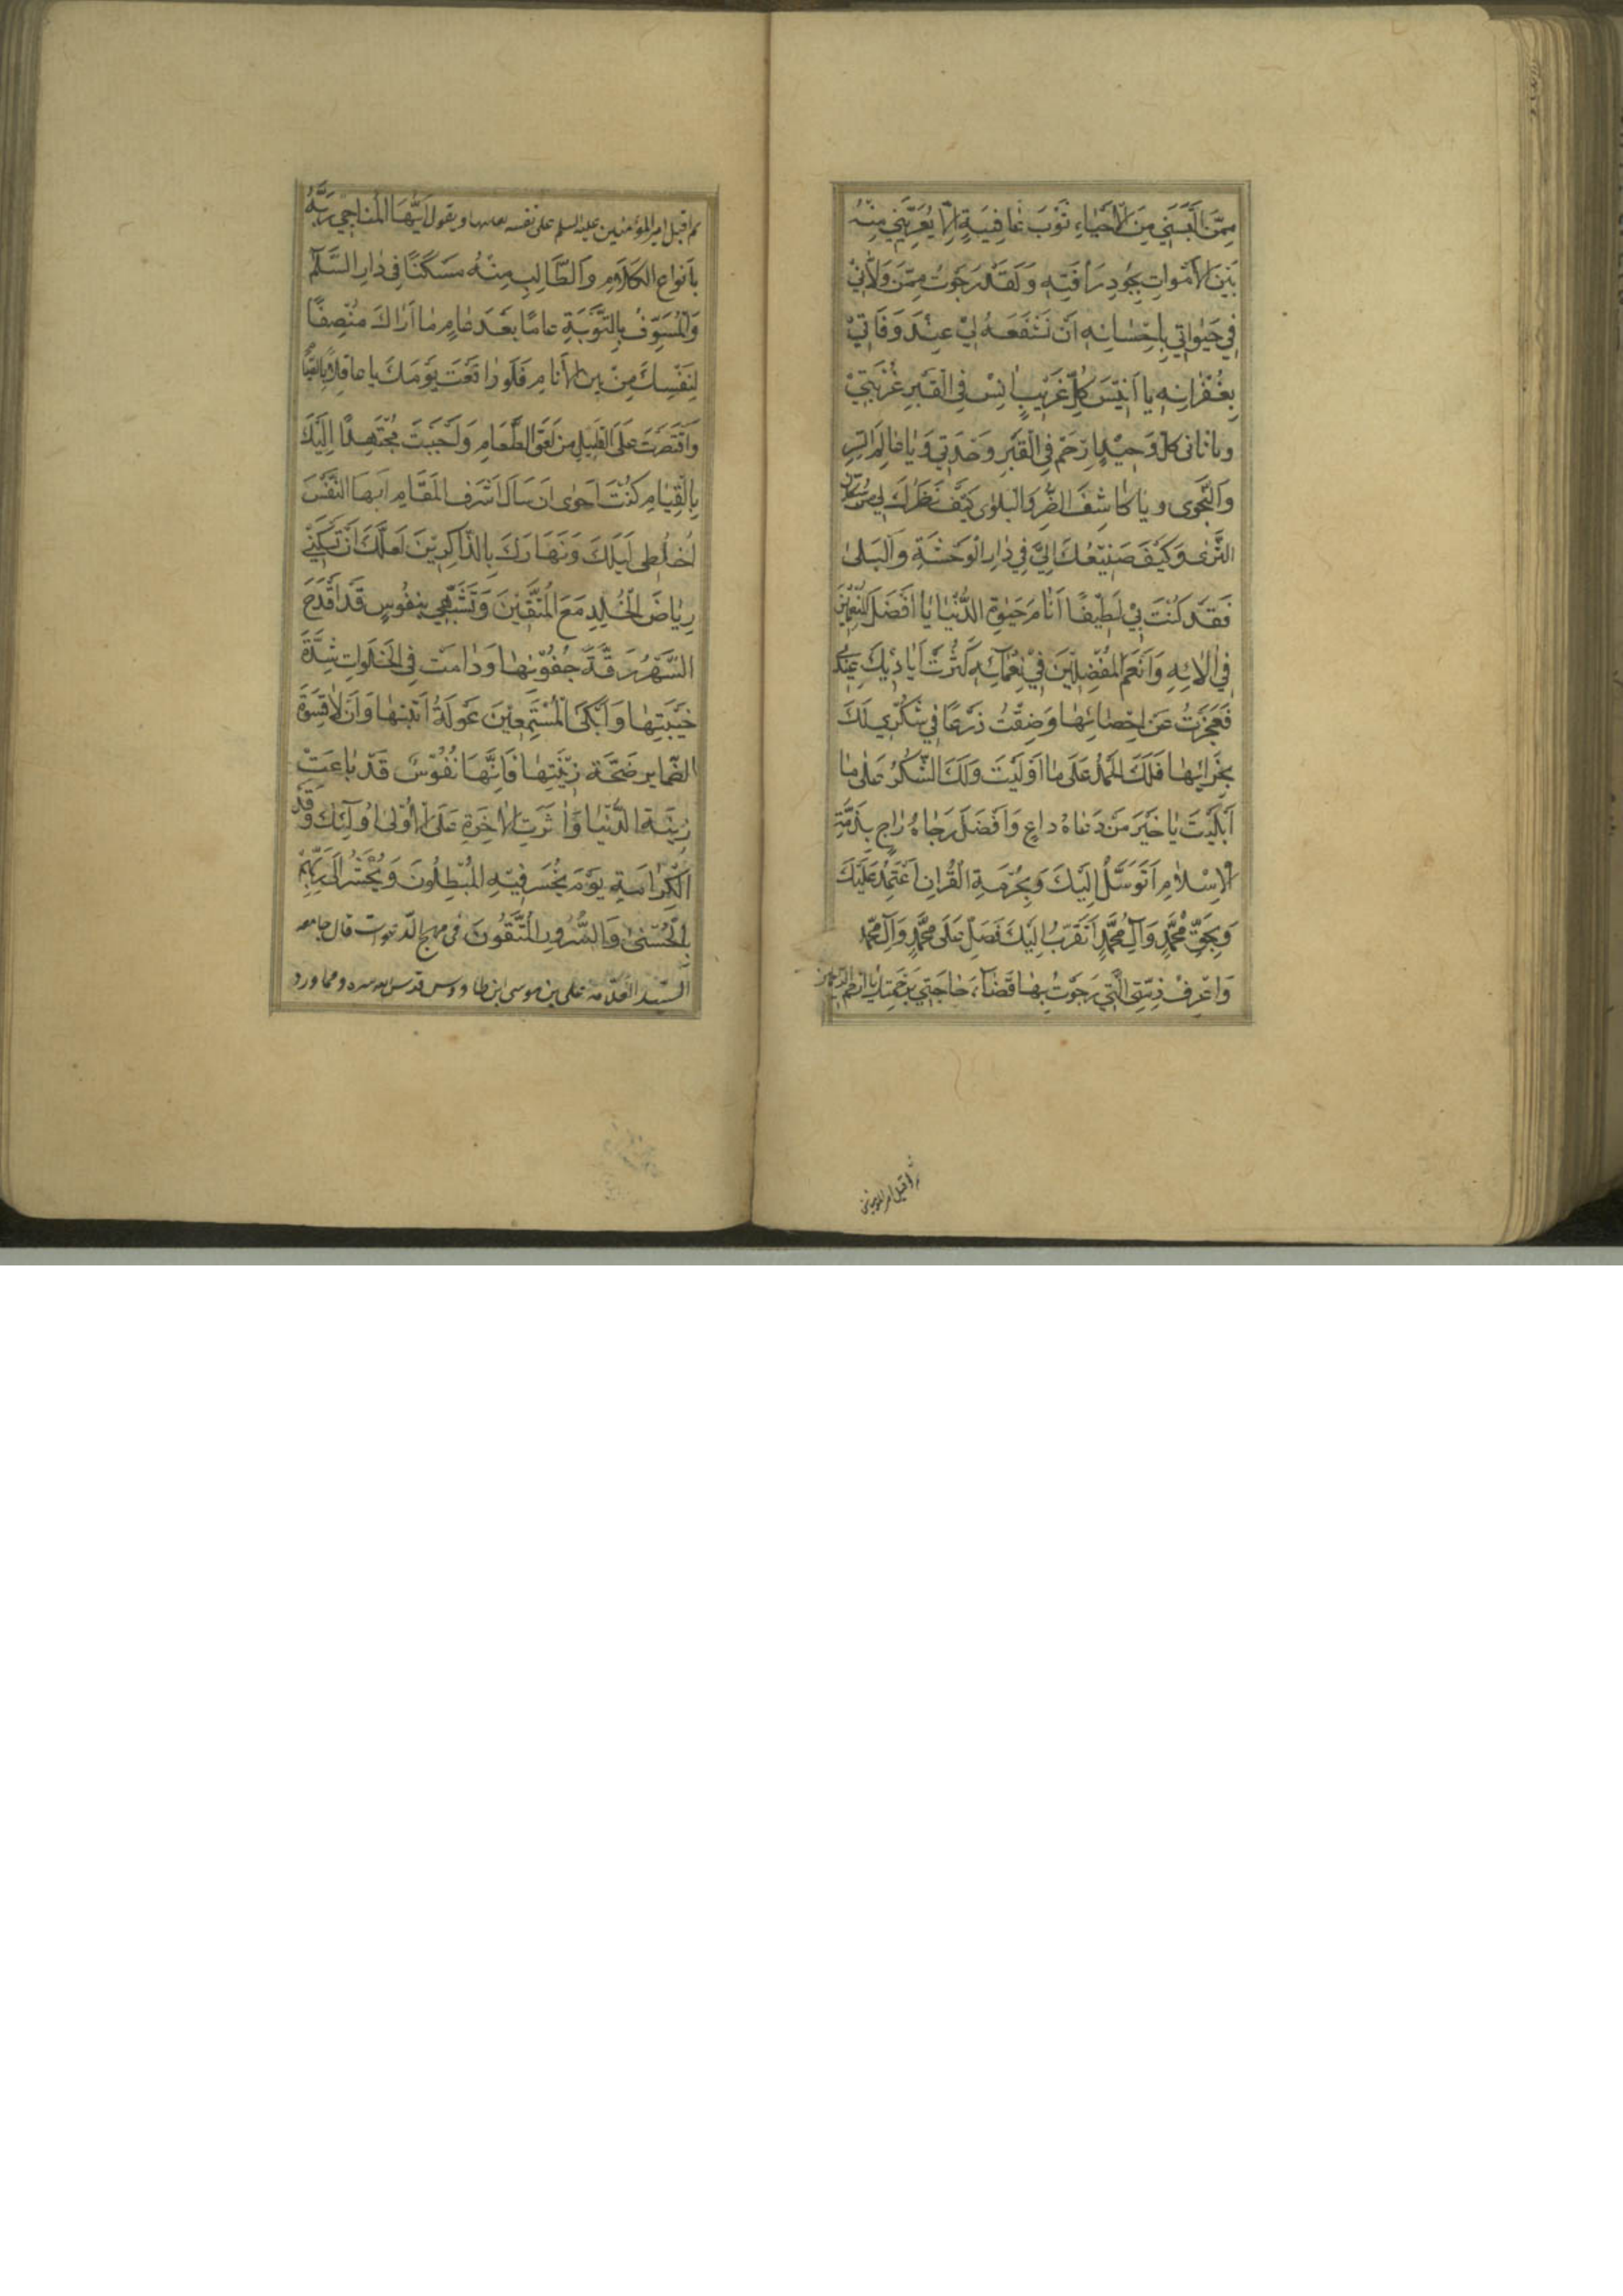 مِمَّن اَلْبَسَنِي مِنَ الْاَحْيَاءِ ثَوْبَ عَافِيَةٍ اَلّا يُعَرِّيَنِي مِنْهُ
بَيْنَ الْاَمْوَاتِ بِجُودِ رَأْفَتِهِ وَلَقَدْ رَجَوْتُ مِمَّن وَلَّانِيْ
فِي حَيٰوتِي بِاِحْسَانِهِ اَنْ تَشْفَعَهُ لِيْ عِنْدَ وَفَاتِيْ
بِغُفْرَانِهِ يا اَنِيْسَ كُلِّ غَرِيْبٍ اٰنِسْ فِي الْقَبْرِ غُرْبَتِيْ
ويا ثانى كلّ وَحِيْدٍ اِرْحَمْ فِي الْقَبْرِ وَحْدَتِي وَيا عَالِمَ السِّرِ
وَالنَّجْوى ويا كاشِفَ الضُّرِ وَالْبَلْوى كَيْفَ نَظَرُكَ لِي مِنْ سُكّان
الثَّرٰى وَكَيْفَ صَنِيْعُكَ اِلَيَّ فِي دٰارِ الْوَحْشَةِ وَالْبَلىٰ
فَقَدْ كُنْتَ بِيْ لَطِيْفًا اَيّامَ حَيٰوةِ الدُّنْيَا يا اَفْضَلَ الْمُنْعِمِيْنَ
فِي اٰلائِهِ وَاَنْعَمَ الْمُفْضِلِيْنَ فِيْ نَعْمَائِهِ كَثُرَتْ اَيَادِيْكَ عِنْدِي
فَعَجَزْتُ عَنْ اِحْصَائِهَا وَضِقْتُ ذَرْعًا فِي شُكْرِي لَكَ
بِجَزَائِهَا فَلَكَ الْحَمْدُ عَلَى ما اَوْلَيْتَ وَلَكَ الشُّكْرُ عَلٰى ما
اَبْلَيْتَ يا خَيْرَ مَنْ دَعَاهُ داعٍ وَاَفْضَلَ مَنْ رَجَاهُ رَاجٍ بِذِمَّةِ
الْاِسْلَامِ اَتَوَسَّلُ اِلَيْكَ وَبِحُرْمَةِ الْقُرْاٰنِ اَعْتَمِدُ عَلَيْكَ
وَبِحَقِّ مُحَمَّدٍ وَآلِ مُحَمَّدٍ اَتَقَرَّبُ اِلَيْكَ فَصَلِّ عَلَى مُحَمَّدٍ وَآلِ مُحَمَّدٍ
وَاعْرِفْ ذِمَّتِيَ الَّتِي رَجَوْتُ بِهَا قَضَاءَ حَاجَتِي بِرَحْمَتِكَ يا اَرْحَمَ الرّاحمين
ثم اقبل امير المؤمنين
ثم اقبل امير المؤمنين عليه السلم على نفسه يعاتبها ويقول اَيُّهَا الْمُنَاجِي رَبَّهُ
بِاَنواعِ الكَلَامِ وَالطَّالِبِ مِنْهُ مَسْكَنًا فِي دَارِ السَّلَامِ
وَالْمُسَوِّفُ بِالتَّوْبَةِ عامًا بَعْدَ عَامٍ ما اَرَاكَ مُنْصِفًا
لِنَفْسِكَ مِنْ بينِ الْاَنامِ فَلَو دافَعْتَ يَوْمَكَ يا غافِلًا بِالصِّيَام
وَاقْتَصَرْتَ عَلَى الْقَلِيلِ مِن لَعْقِ الطَّعَامِ وَاَحْيَيْتَ مُجْتَهِدًا لَيْلَكَ
بِالْقِيَامِ كُنْتَ اَحْرٰى اَنْ تَنَالَ اَشْرَفَ الْمَقَامِ اَيّهَا النَّفْسُ
اُخْلُطِى لَيْلَكَ وَنَهَارَكَ بِالذّاكِرِيْنَ لَعَلَّكَ اَنْ تَسْكُنِي
رِيَاضَ الْخُلْدِ مَعَ الْمُتَّقِيْنَ وَتَشَبَّهِي بِنُفُوسٍ قَدْ اَقْدَحَ
السَّهَرُ رِقَّةَ جُفُوْنِهَا وَدامَتْ فِي الْخَلَواتِ شِدَّةُ
حَنِيْنِهَا وَاَبْكَى الْمُسْتَمِعِيْنَ عَوْلَةُ اَنِيْنِهَا وَاَلٰانَ قَسْوَةَ
الضّماير ضَجَّة رَنِيْنِهَا فَاِنَّهَا نُفُوْسٌ قَدْ باعَتْ
زِيْنَة الدُّنْيَا وَاٰثَرَتِ الْاٰخِرَةَ عَلَى الْاُوْلٰى اُولٰئِكَ وَفْدُ
الْكَرَامَةِ يَوْمَ يَخْسَر فِيْهِ الْمُبْطِلُونَ وَيُحْشَرُ اِلَى رَبِّهِمْ
بِالْحُسْنىٰ وَالسُّرُورِ الْمُتَّقُونَ في مهج الدّعوات قال جامعه
السّيّد العلّامة على بن موسى ابن طاووس قدس الله سره ومما ورد